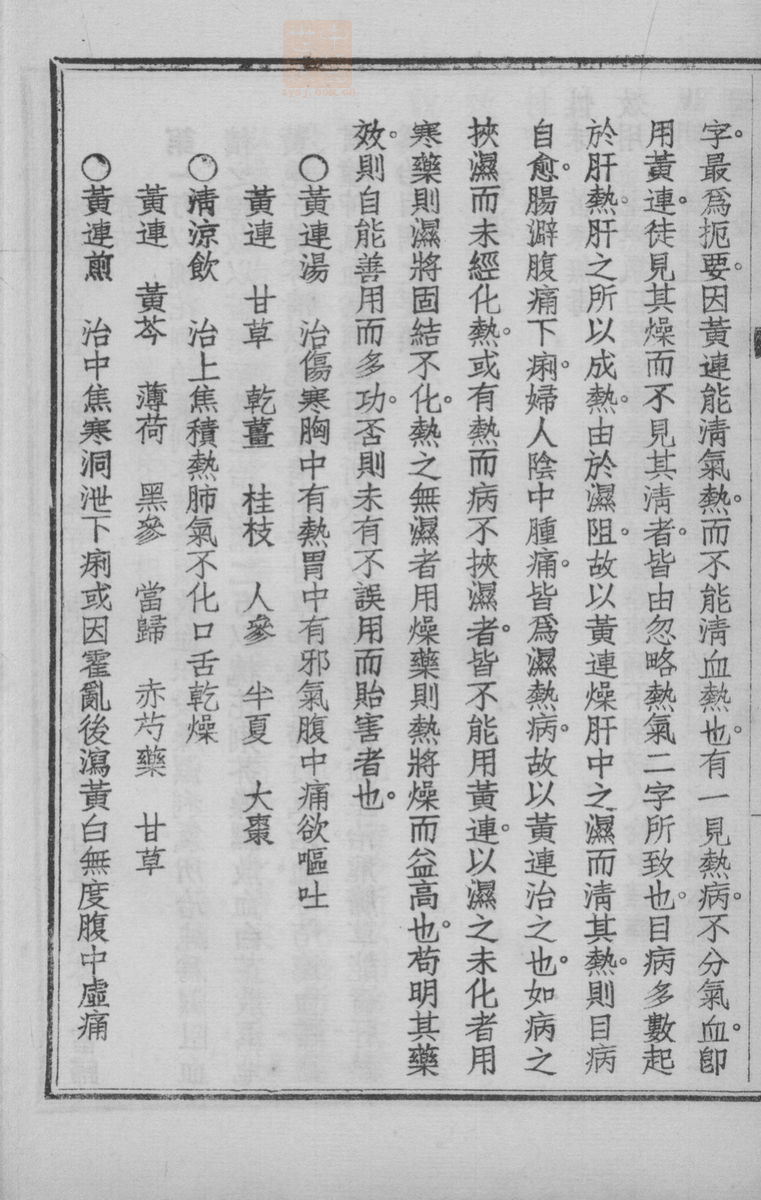 字。最爲扼要。因黃連能清氣熱。而不能清血熱也。有一見熱病。不分氣血。卽
用黃連。徒見其燥而不見其清者。皆由忽略熱氣二字所致也。目病多數起
於肝熱。肝之所以成熱。由於濕阻。故以黃連燥肝中之濕而清其熱。則目病
自愈。腸澼腹痛下痢。婦人陰中腫痛。皆爲濕熱病。故以黃連治之也。如病之
挾濕而未經化熱。或有熱而病不挾濕者。皆不能用黃連。以濕之未化者用
寒藥則濕將固結不化。熱之無濕者用燥藥則熱將燥而益高也。苟明其藥
效。則自能善用而多功。否則未有不誤用而貽害者也。
〇黃連湯 治傷寒胸中有熱胃中有邪氣腹中痛欲嘔吐
黃連 甘草 乾薑 桂枝 人參 半夏 大棗
〇清涼飲 治上焦積熱肺氣不化口舌乾燥
黃連 黃芩 薄荷 黑參 當歸 赤芍藥 甘草
〇黃連煎 治中焦寒洞泄下痢或因霍亂後瀉黃白無度腹中虛痛